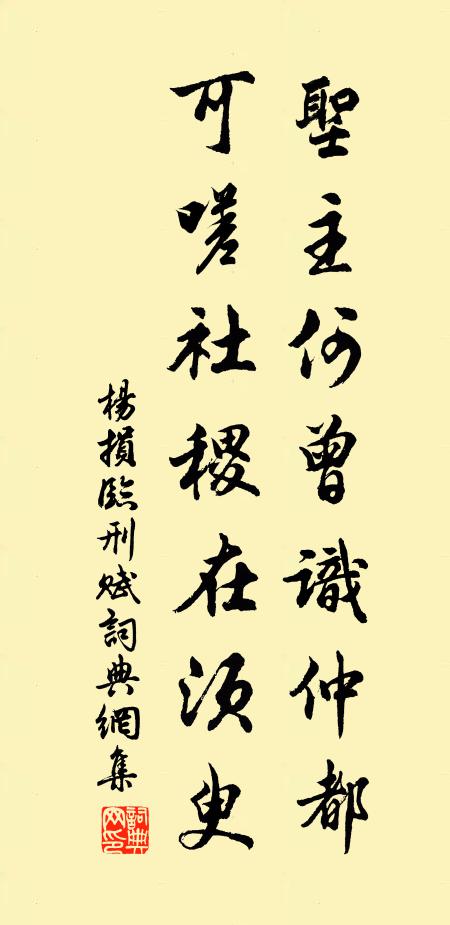 聖主何曾識仲都
可嗟社稷在須臾
楊損臨刑賦詞典網集
詞典网印